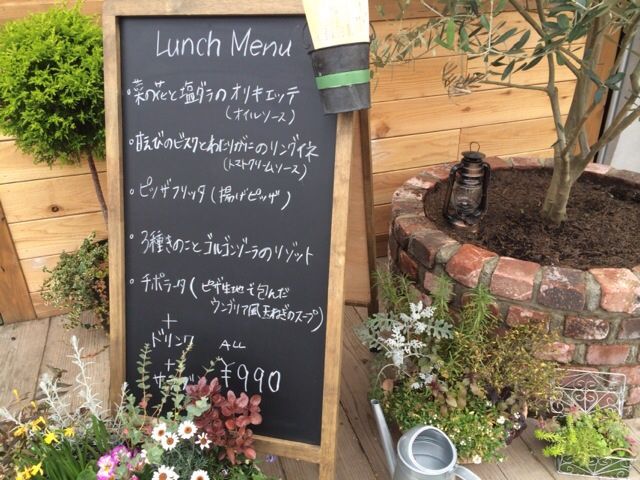 Lunch Menu
・菜の花と塩ダラのオリキエッテ
(オイルソース)
・甘えびのビスクとわたりがにのリングイネ
(トマトクリームソース)
・ピッザフリッタ(揚げピッザ)
・3種きのことゴルゴンゾーラのリゾット
・チポラータ(ピザ生地で包んだ
ウンブリア風玉ねぎのスープ)
+
ドリンク
+
サラダ
ALL
¥990